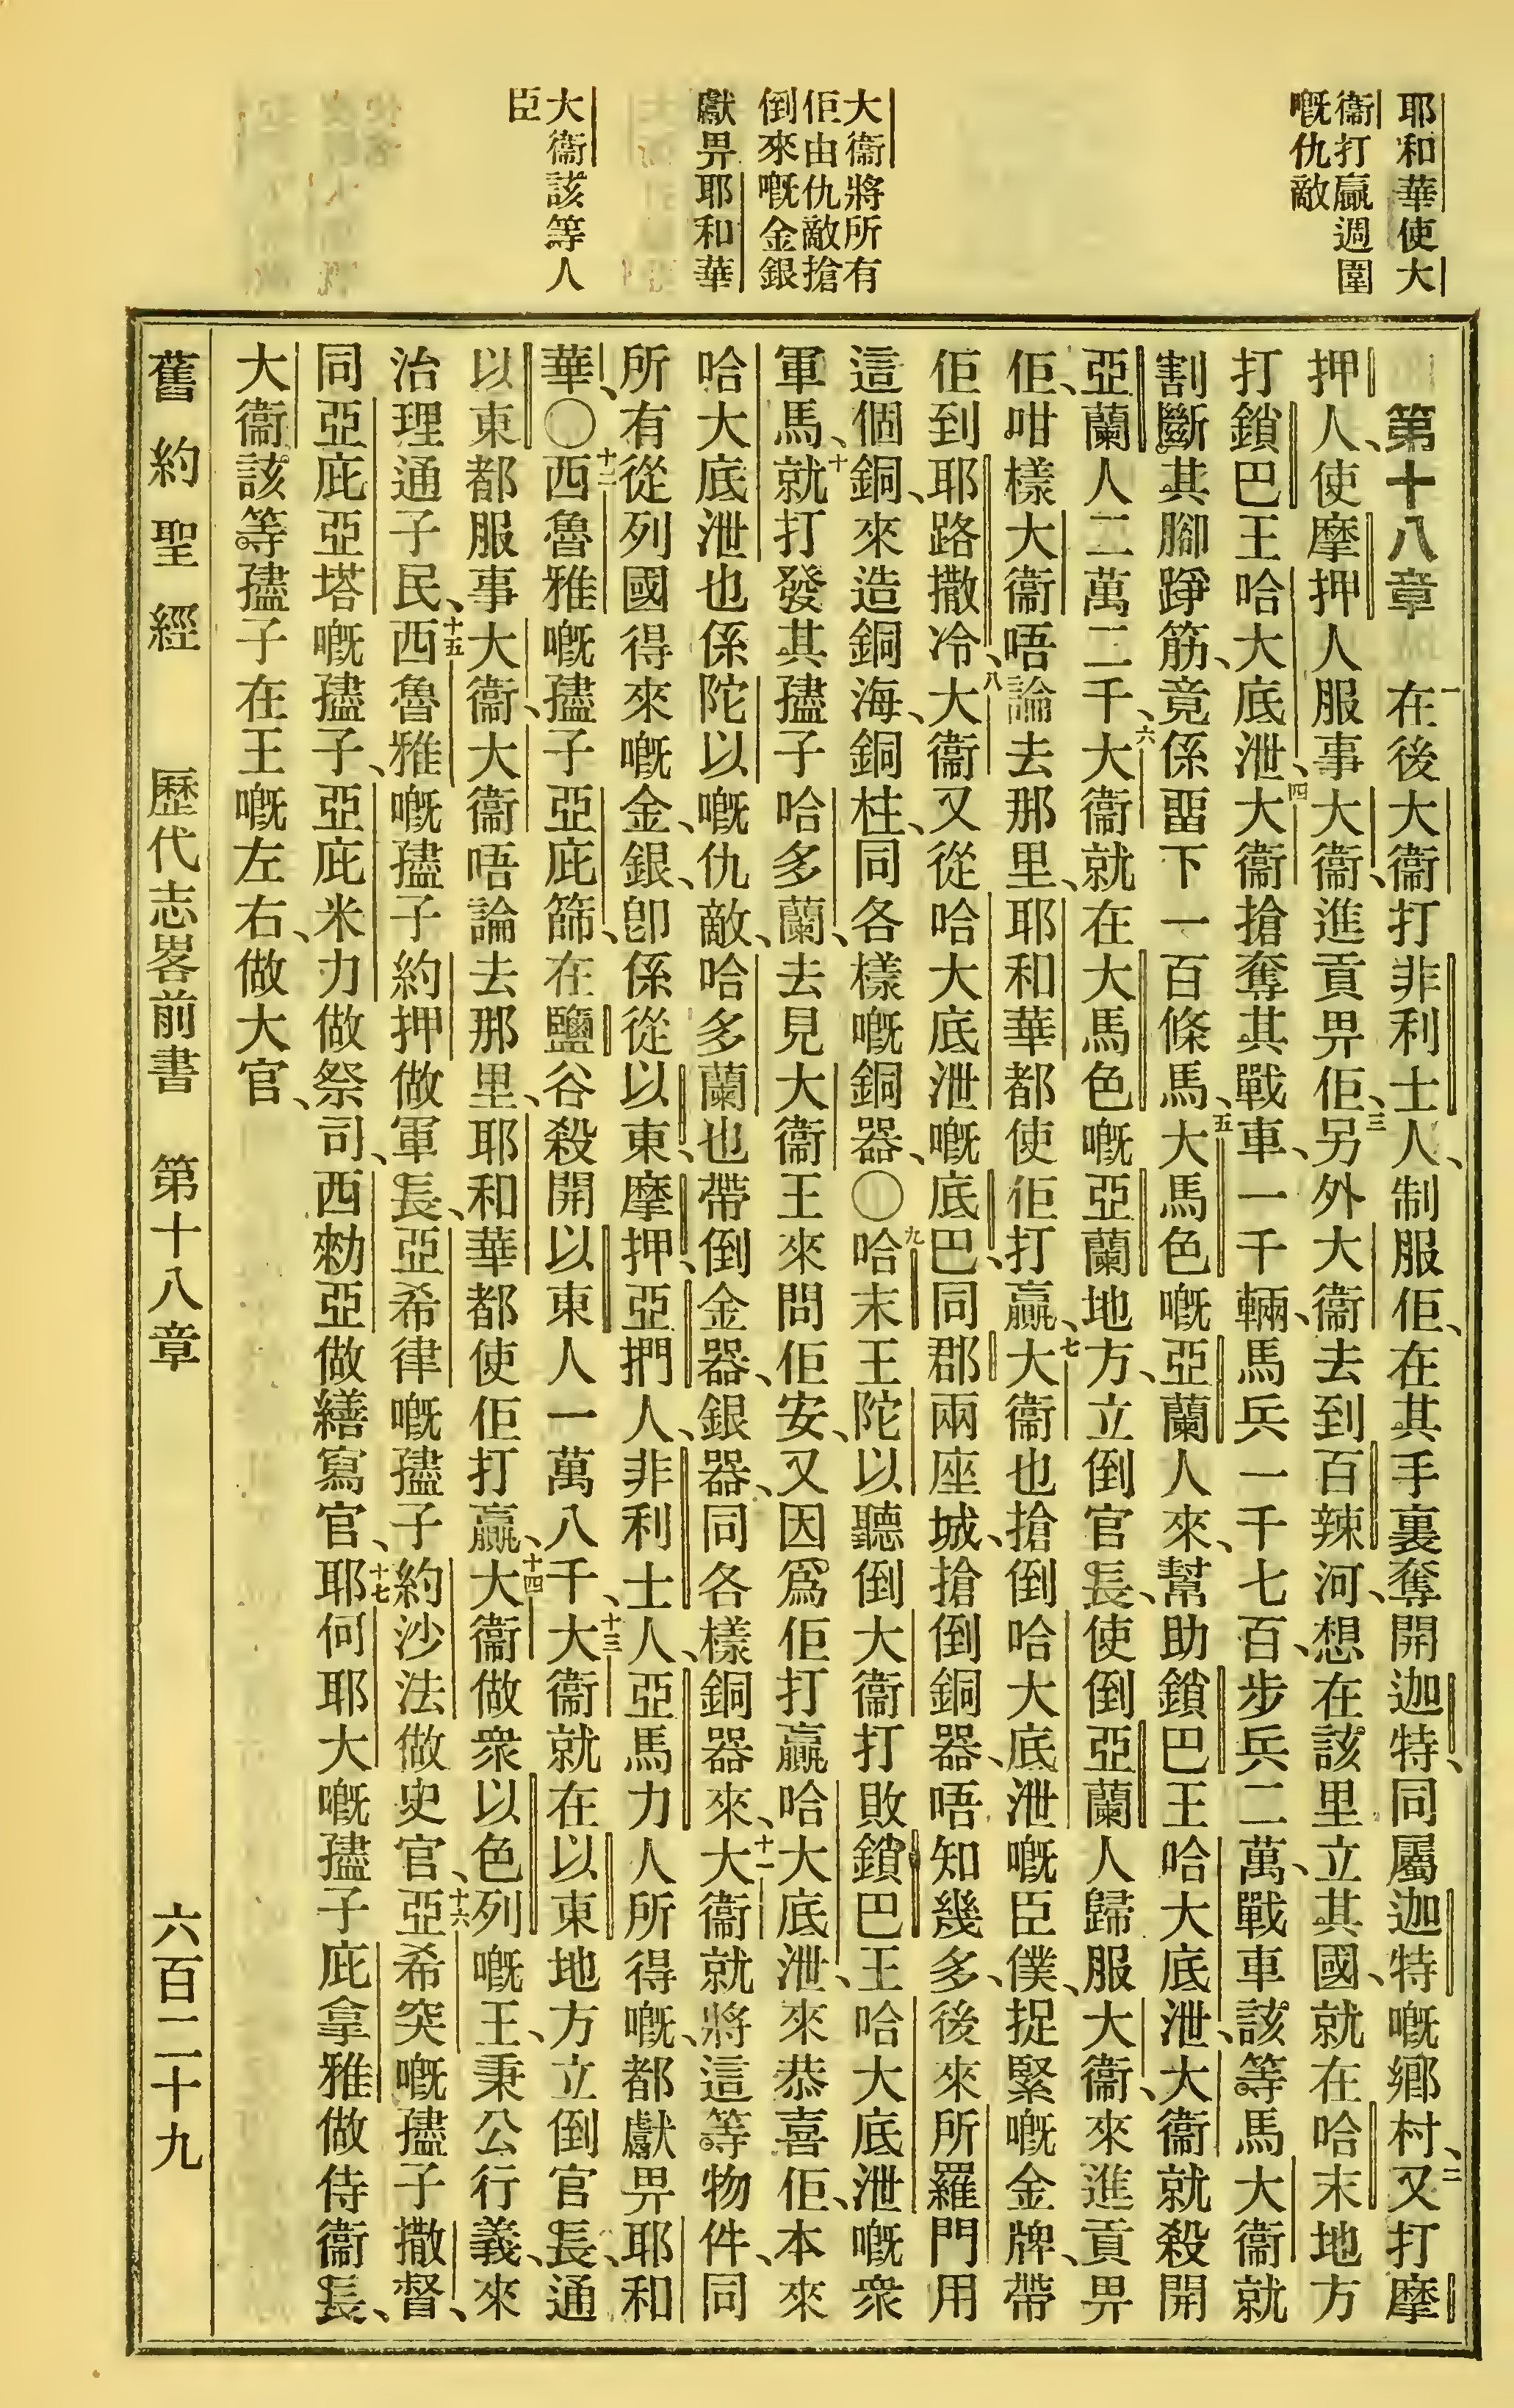 耶和華使大
衞打贏週圍
嘅仇敵
大衞將所有
佢由仇敵搶
倒來嘅金銀
獻畀耶和華
大衞該等人
臣
第十八章 一在後大衞打非利士人、制服佢、在其手裏奪開迦特、同屬迦特嘅鄉村、二又打摩
押人、使摩押人服事大衞、進貢畀佢、三另外大衞去到百辣河、想在該里立其國、就在哈末地方
打鎖巴王哈大底泄、四大衞搶奪其戰車、一千輛、馬兵一千七百、步兵二萬、戰車該等馬大衞就
割斷其腳踭筋、竟係留下一百條馬、五大馬色嘅亞蘭人來、幫助鎖巴王哈大底泄、大衞就殺開
亞蘭人二萬二千、六大衞就在大馬色嘅亞蘭地方、立倒官長、使倒亞蘭人歸服大衞、來進貢畀
佢、咁樣大衞唔論去那里、耶和華都使佢打贏、七大衞也搶倒哈大底泄嘅臣僕、捉緊嘅金牌、帶
佢到耶路撒冷、八大衞又從哈大底泄嘅底巴、同郡兩座城、搶倒銅器、唔知幾多、後來所羅門用
這個銅、來造銅海、銅柱、同各樣嘅銅器、○九哈末王陀以聽倒大衞打敗鎖巴王哈大底泄嘅眾
軍馬、十就打發其孻子哈多蘭、去見大衞王來問佢安、又因爲佢打贏哈大底泄、來恭喜佢、本來
哈大底泄也係陀以嘅仇敵、哈多蘭也帶倒金器、銀器、同各樣銅器來、十一大衞就將這等物件、同
所有從列國得來嘅金、銀、卽係從以東、摩押、亞捫人、非利士人、亞馬力人所得嘅、都獻畀耶和
華、○十二西魯雅嘅孻子亞庇篩、在鹽谷殺開以東人一萬八千、十三大衞就在以東地方立倒官長、通
以東都服事大衞、大衞唔論去那里、耶和華都使佢打贏、十四大衞做衆以色列嘅王、秉公行義、來
治理通子民、十五西魯雅嘅孻子約押做軍長、亞希律嘅孻子約沙法做史官、十六亞希突嘅孻子撒督、
同亞庇亞塔嘅孻子、亞庇米力做祭司、西勑亞做繕寫官、十七耶何耶大嘅孻子庇拿雅做侍衞長、
大衞該等孻子在王嘅左右、做大官、
舊約聖經 歷代志畧前書 第十八章 六百二十九